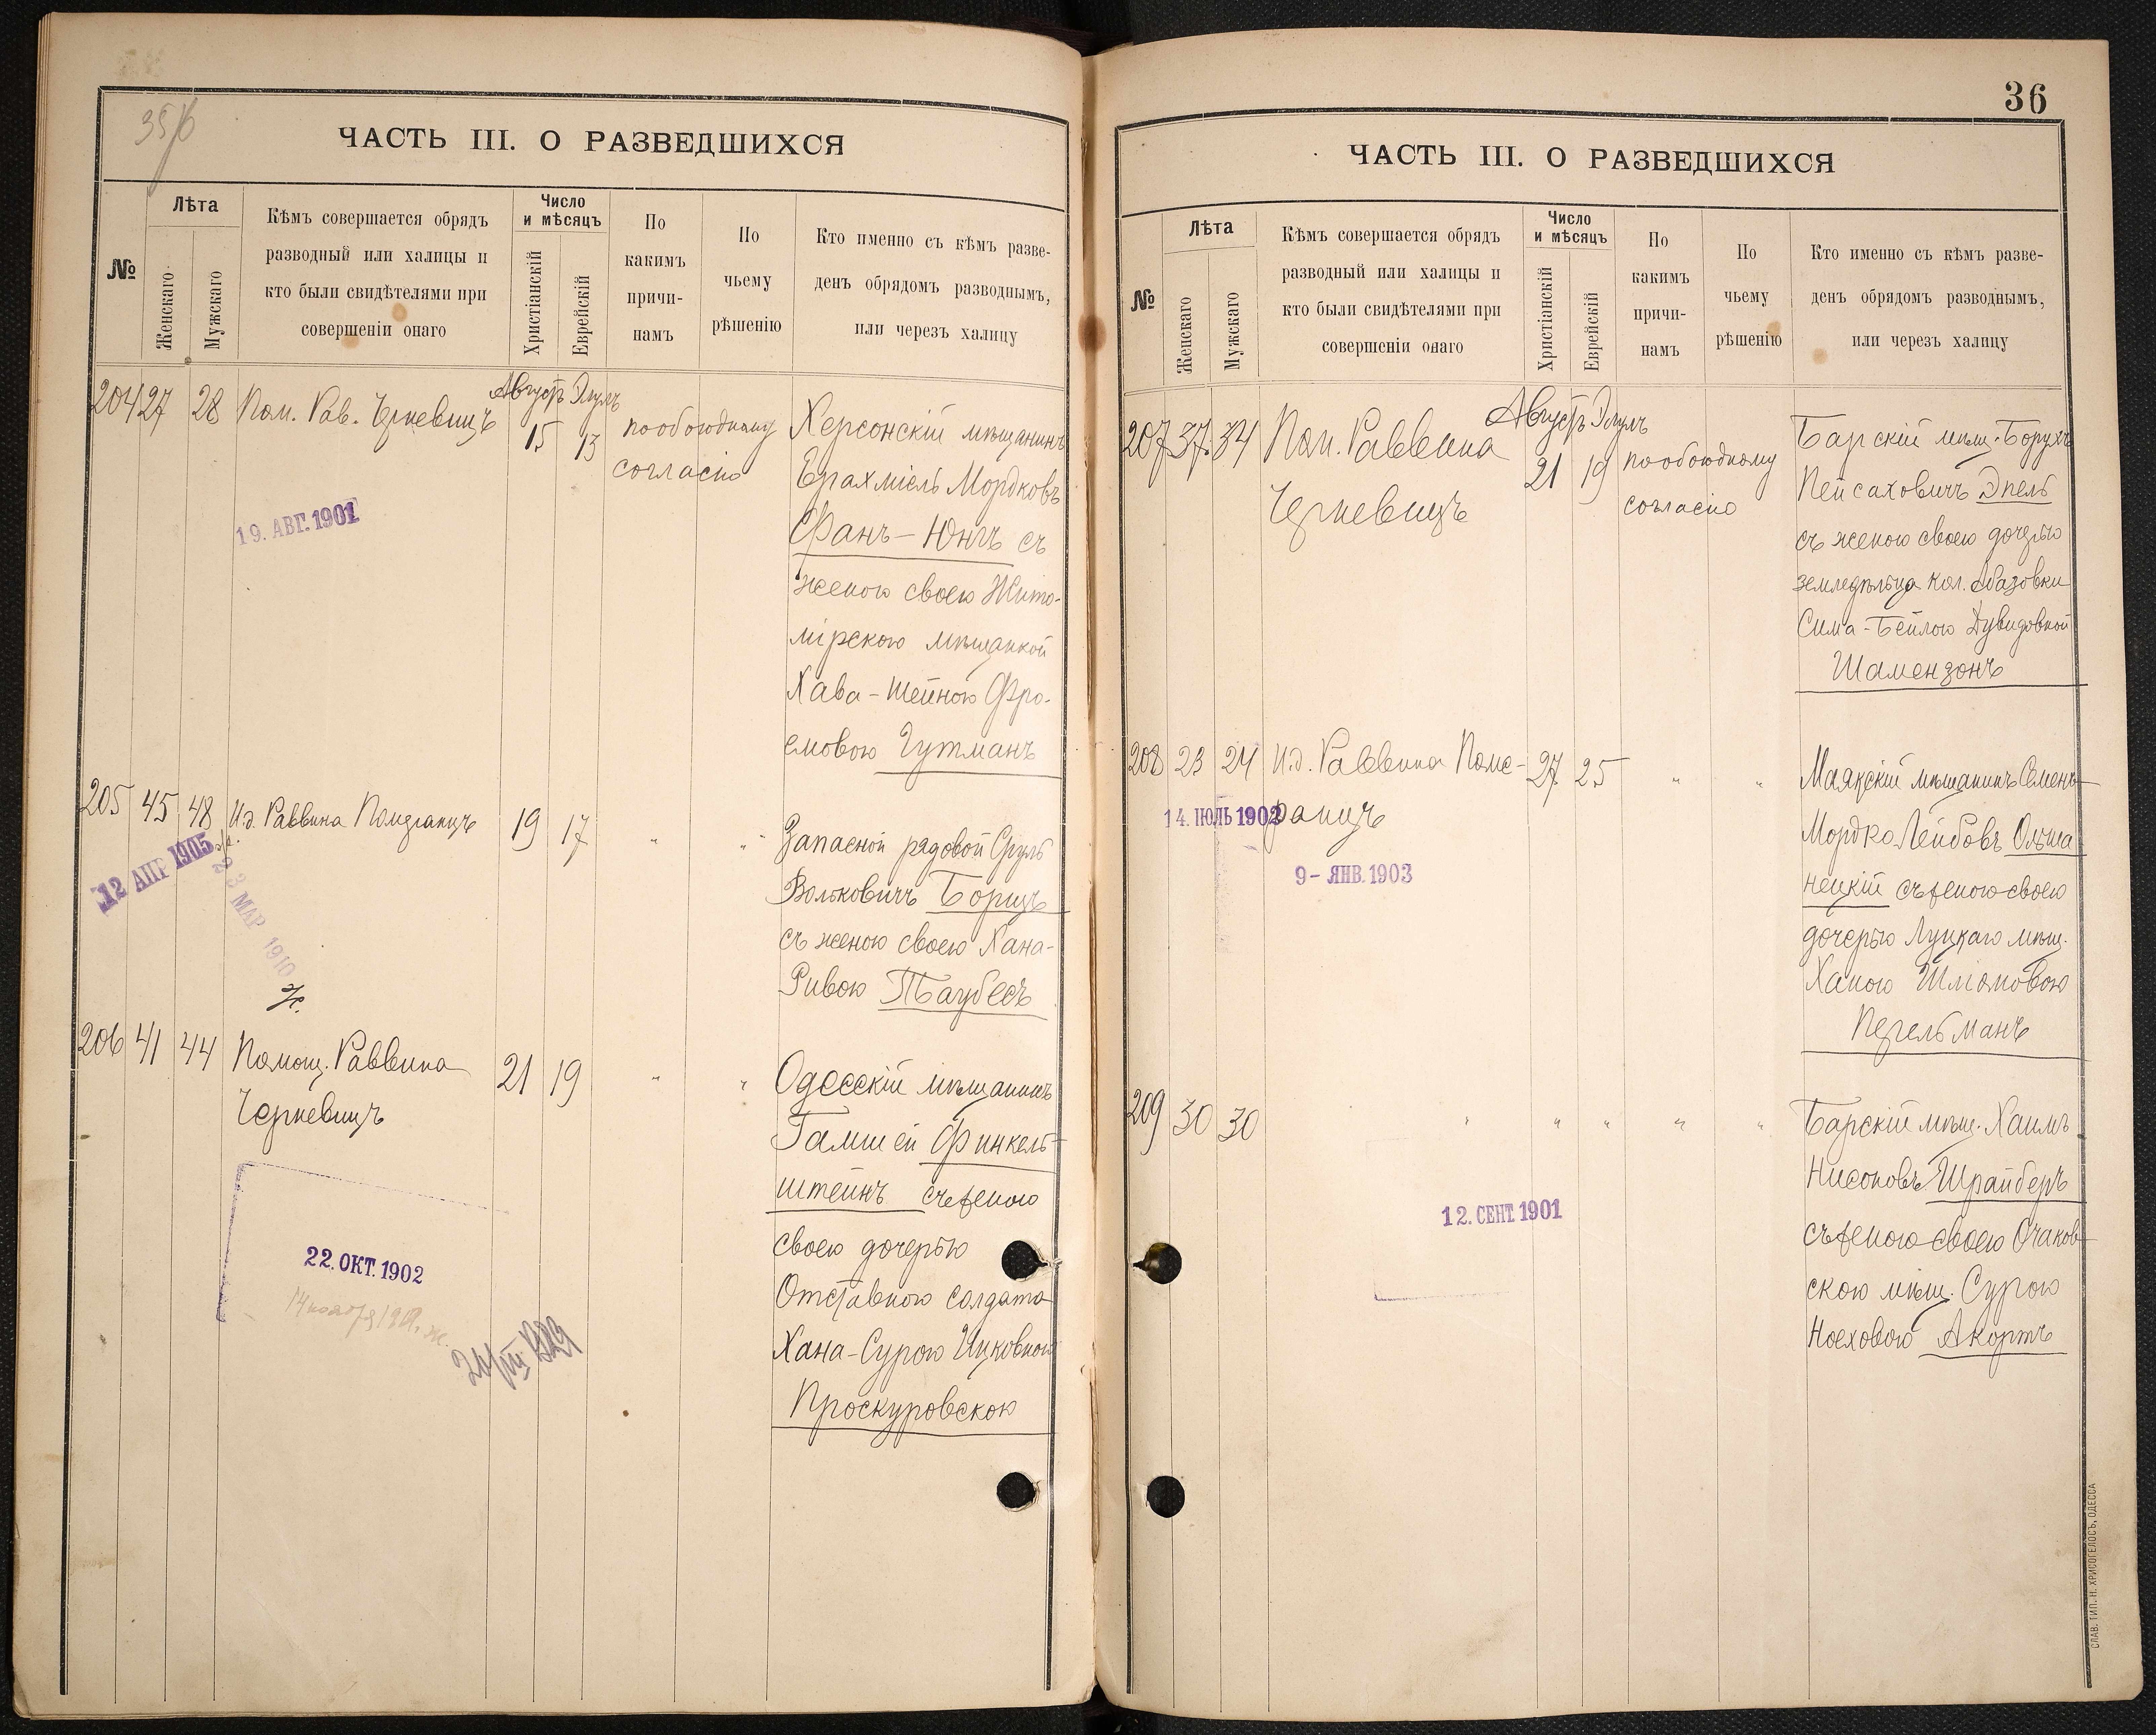 ЧАСТЬ III. О РАЗВЕДШИХСЯ
№
Лѣта
Женскаго
Мужскаго
Кѣмъ совершается обрядъ
разводный или халицы и
кто были свидѣтелями при
совершеніи онаго
Число
и мѣсяцъ
Христіанскій
Еврейскій
По
какимъ
причи-
намъ
По
чьему
рѣшенію
Кто именно съ кѣмъ разве-
денъ обрядомъ разводнымъ,
или черезъ халицу
Августъ Элулъ
204 27 28 Пом. Рав. Черневицъ 15 13 по обоюдному
согласію
Херсонскій мѣщанинъ
Ерахміель Мордковъ
Фанъ-Юнгъ съ
женою своею Жито-
мірскою мѣщанкой
Хава-Шейною Фро-
емовою Гутманъ
19. АВГ. 1901
205 45 48 И.д. Раввина Померанцъ 19 17 " "
Запасной рядовой Сруль
Вольковичъ Борщъ
съ женою своею Хана-
Ривою Таубесъ
12 АПР 1905
23 МАР 1910
206 41 44 Помощ. Раввина
Черневицъ
21 19 " "
Одесскій мѣщанинъ
Гамшей Финкель-
штейнъ съ женою
своею дочерью
Отставного солдата
Хана-Сурою Ицковною
Проскуровскою
22. ОКТ. 1902
36
ЧАСТЬ III. О РАЗВЕДШИХСЯ
№
Лѣта
Женскаго
Мужскаго
Кѣмъ совершается обрядъ
разводный или халицы и
кто были свидѣтелями при
совершеніи онаго
Число
и мѣсяцъ
Христіанскій
Еврейскій
По
какимъ
причи-
намъ
По
чьему
рѣшенію
Кто именно съ кѣмъ разве-
денъ обрядомъ разводнымъ,
или черезъ халицу
Августъ Элулъ
207 37 34 Пом. Раввина
Черневицъ
21 19 по обоюдному
согласію
Барскій мѣщ. Борухъ
Пейсаховичъ Эпель
съ женою своею дочерью
земледѣльца кол. Абазовки
Сима-Бейлою Дувидовной
Шамензонъ
208 23 24 И.д. Раввина Поме-
ранцъ
27 25 " "
Маякскій мѣщанинъ Семенъ-
Мордко Лейбовъ Ольша
нецкій съ женою своею
дочерью Луцкаго мѣщ.
Ханою Шліомовою
Перельманъ
14. ІЮЛЬ 1902
9- ЯНВ. 1903
209 30 30 " " " " "
Барскій мѣщ. Хаимъ
Нисоновъ Шрайберъ
съ женою своею Очаков-
скою мѣщ. Сурою
Ноеховою Акортъ
12. СЕНТ. 1901
СЛАВ. ТИП. Н. ХРИСОГЕЛОСЪ, ОДЕССА